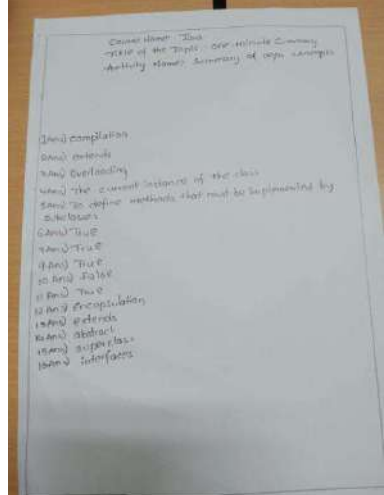 Course Name: Java
Title of the Topic: one-minute Summary
Activity Name: Summary of oops concepts
1Ans) compilation
2Ans) extends
3Ans) Overloading
4Ans) The current instance of the class
5Ans) To define methods that must be implemented by
subclasses
6Ans) True
7Ans) True
9Ans) True
10 Ans) False
11 Ans) True
12 Ans) encapsulation
13Ans) extends
14Ans) abstract
15Ans) superclass
16Ans) interfaces